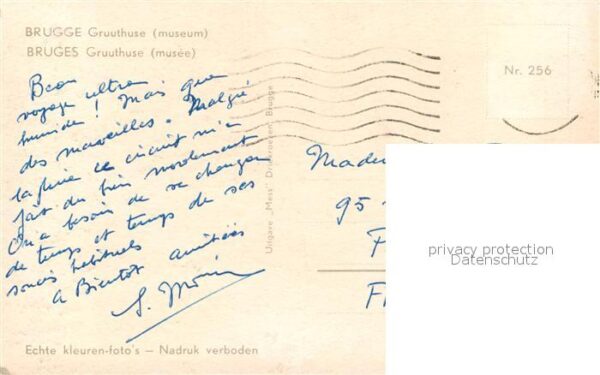 BRUGGE Gruuthuse (museum)
BRUGES Gruuthuse (musée)
Beau
voyage ultra
humide! Mais que
des merveilles. Malgré
la pluie ce circuit m'a
fait du bien moralement
On a besoin de se changer
de temps et temps de ses
soucis habituels
A Bientôt amitiés
Echte kleuren-foto's – Nadruk verboden
Uitgave „Meis” Brugge
Nr. 256
95
F
privacy protection
Datenschutz